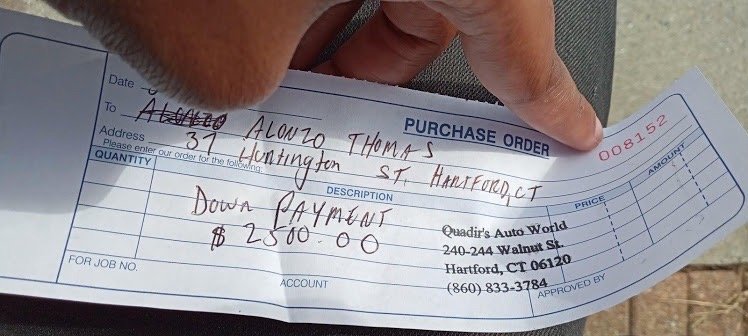 Date
PURCHASE ORDER
008152
To ALONZO THOMAS
Address 37 Huntington ST. HARTFORD, CT
Please enter our order for the following:
QUANTITY DESCRIPTION PRICE AMOUNT
DOWN PAYMENT
$ 2500.00
Quadir's Auto World
240-244 Walnut St.
Hartford, CT 06120
(860) 833-3784
FOR JOB NO. ACCOUNT APPROVED BY